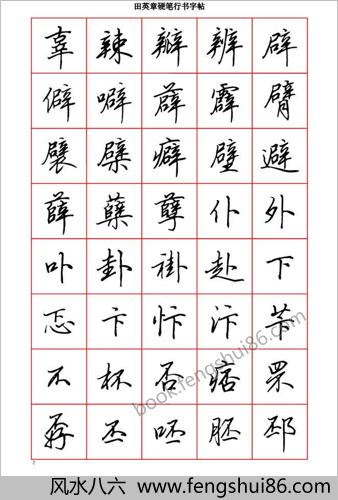 田英章硬笔行书字帖
辜 辣 瓣 辨 辟
僻 噼 薜 霹 臂
襞 檗 癖 壁 避
薛 蘖 孽 仆 外
卟 卦 褂 赴 下
忑 卞 忭 汴 苄
不 杯 否 痞 罘
孬 丕 呸 胚 邳
book.fengshui86.com
2
风水八六 www.fengshui86.com